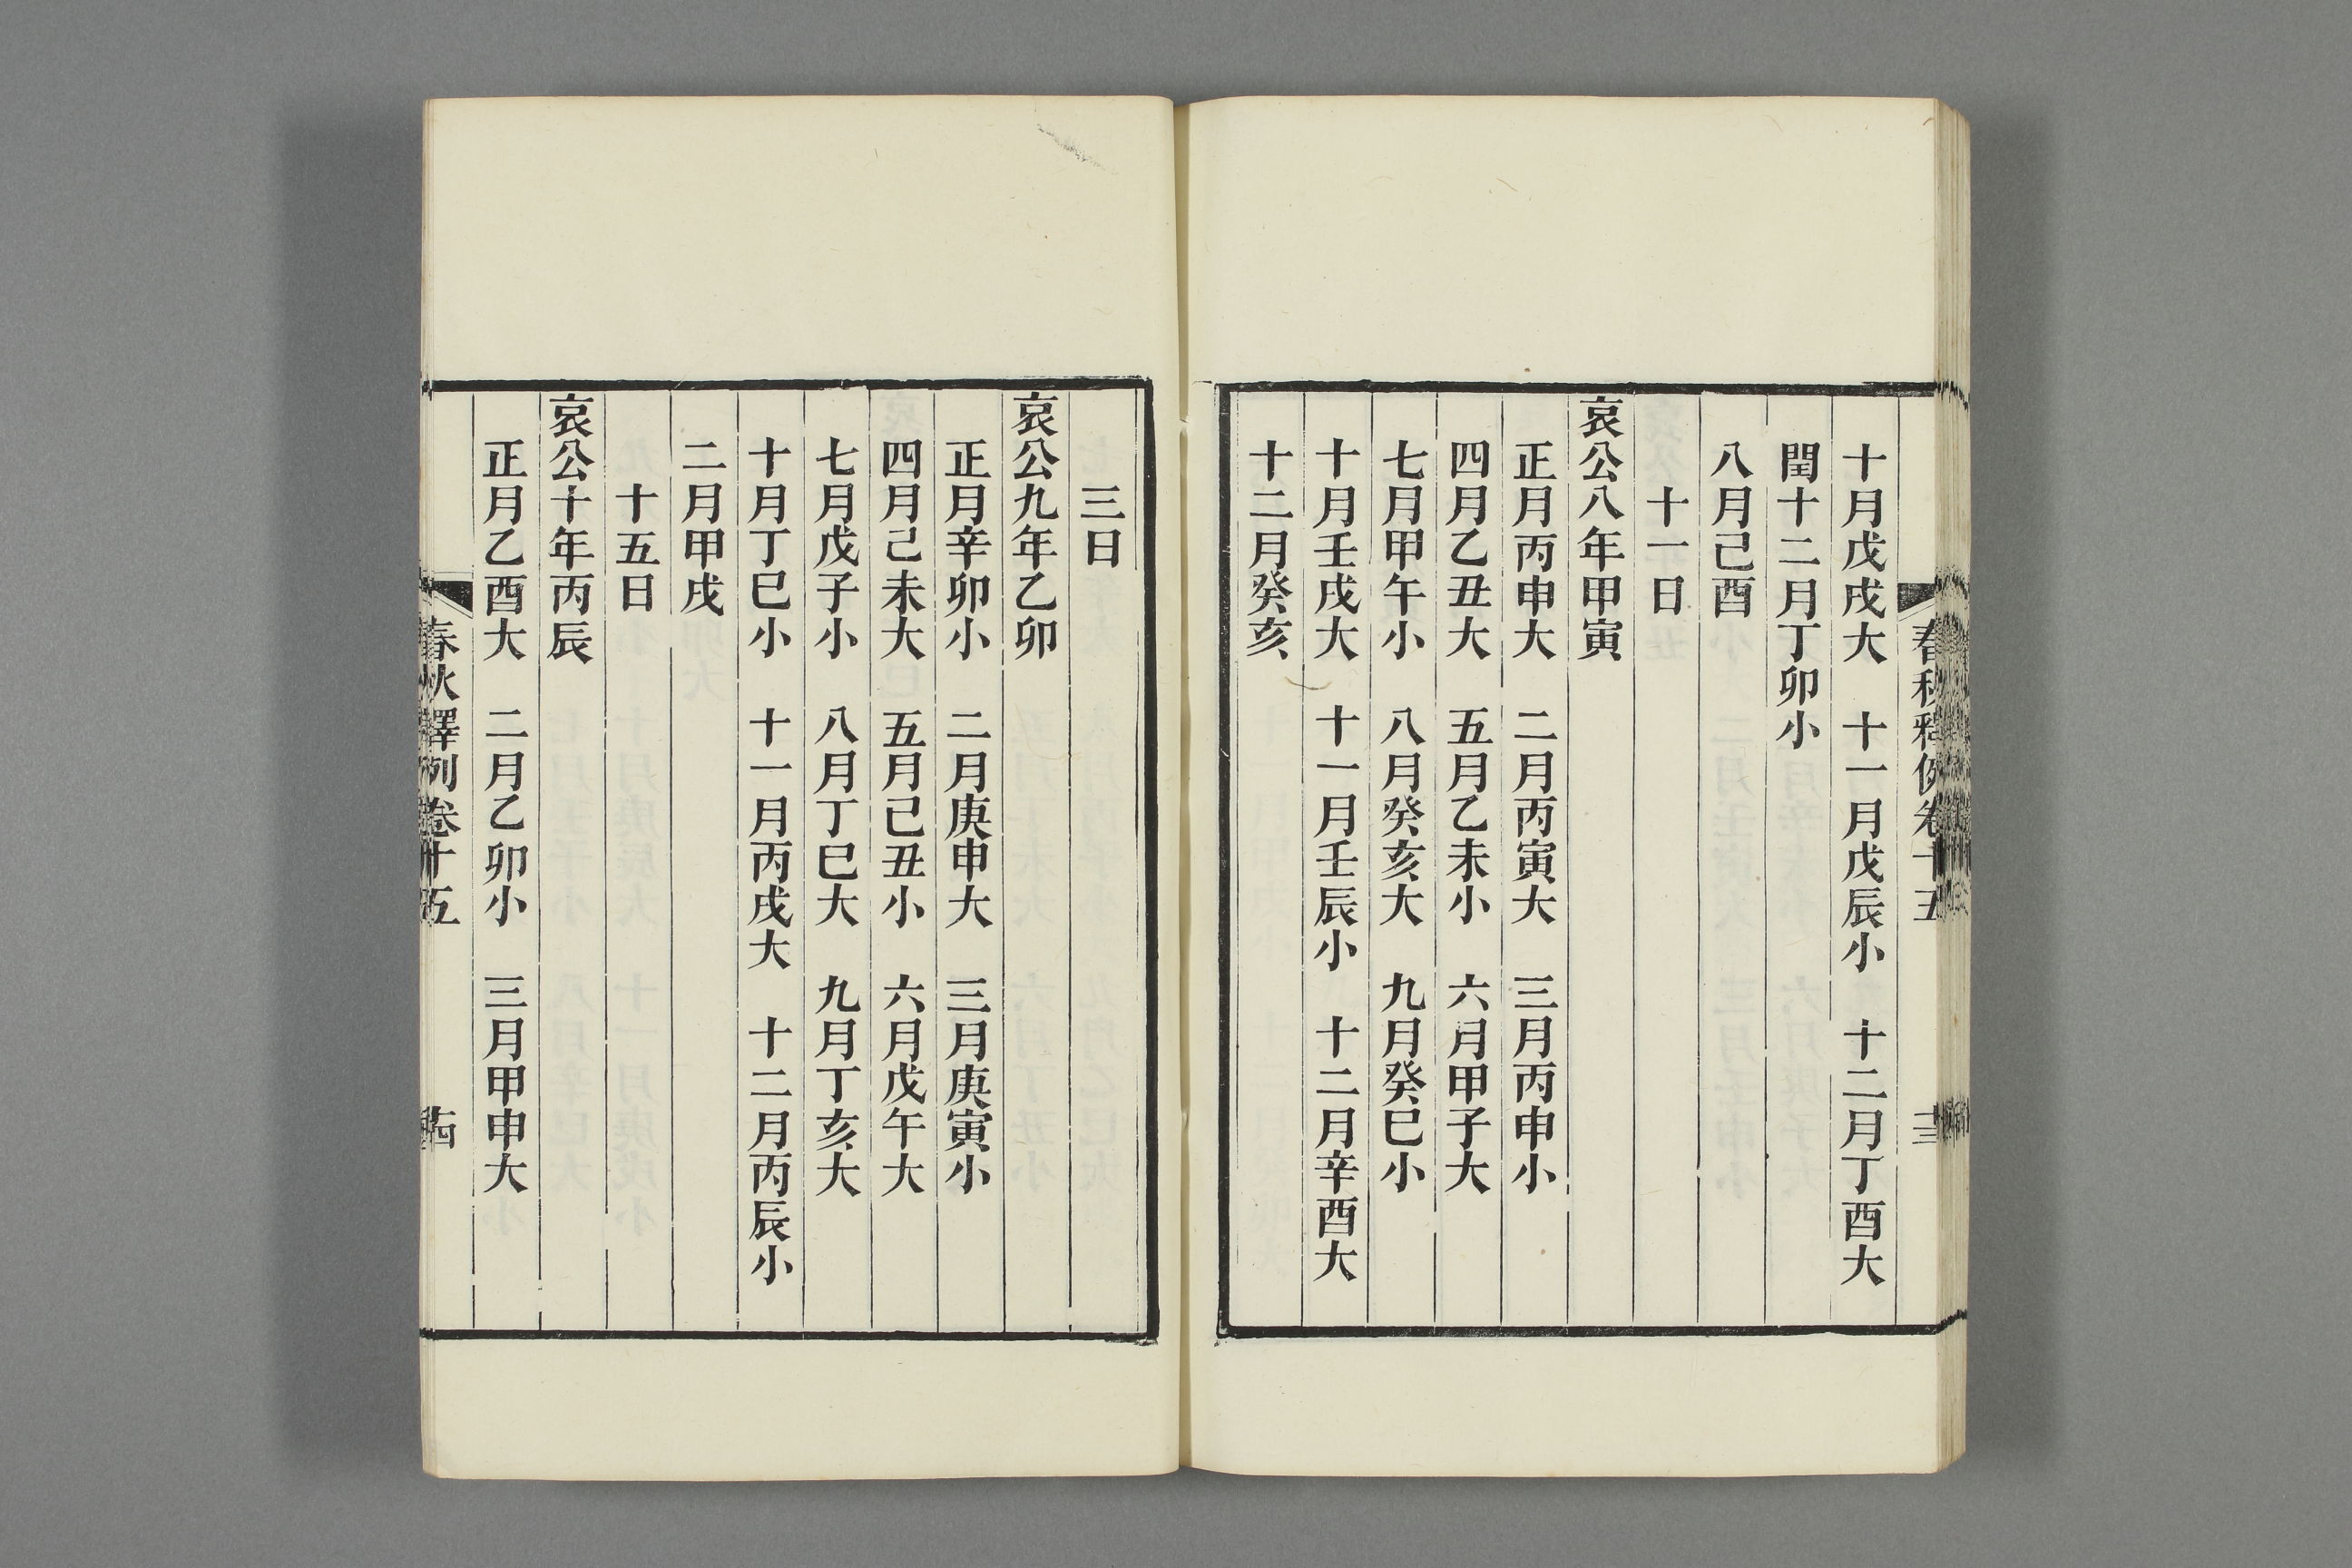 春秋釋例卷十五
十三
十月戊戌大　十一月戊辰小　十二月丁酉大
閏十二月丁卯小
八月己酉
十一日
哀公八年甲寅
正月丙申大　二月丙寅大　三月丙申小
四月乙丑大　五月乙未小　六月甲子大
七月甲午小　八月癸亥大　九月癸巳小
十月壬戌大　十一月壬辰小　十二月辛酉大
十二月癸亥
三日
哀公九年乙卯
正月辛卯小　二月庚申大　三月庚寅小
四月己未大　五月己丑小　六月戊午大
七月戊子小　八月丁巳大　九月丁亥大
十月丁巳小　十一月丙戌大　十二月丙辰小
二月甲戌
十五日
哀公十年丙辰
正月乙酉大　二月乙卯小　三月甲申大
春秋釋例卷十五
十四